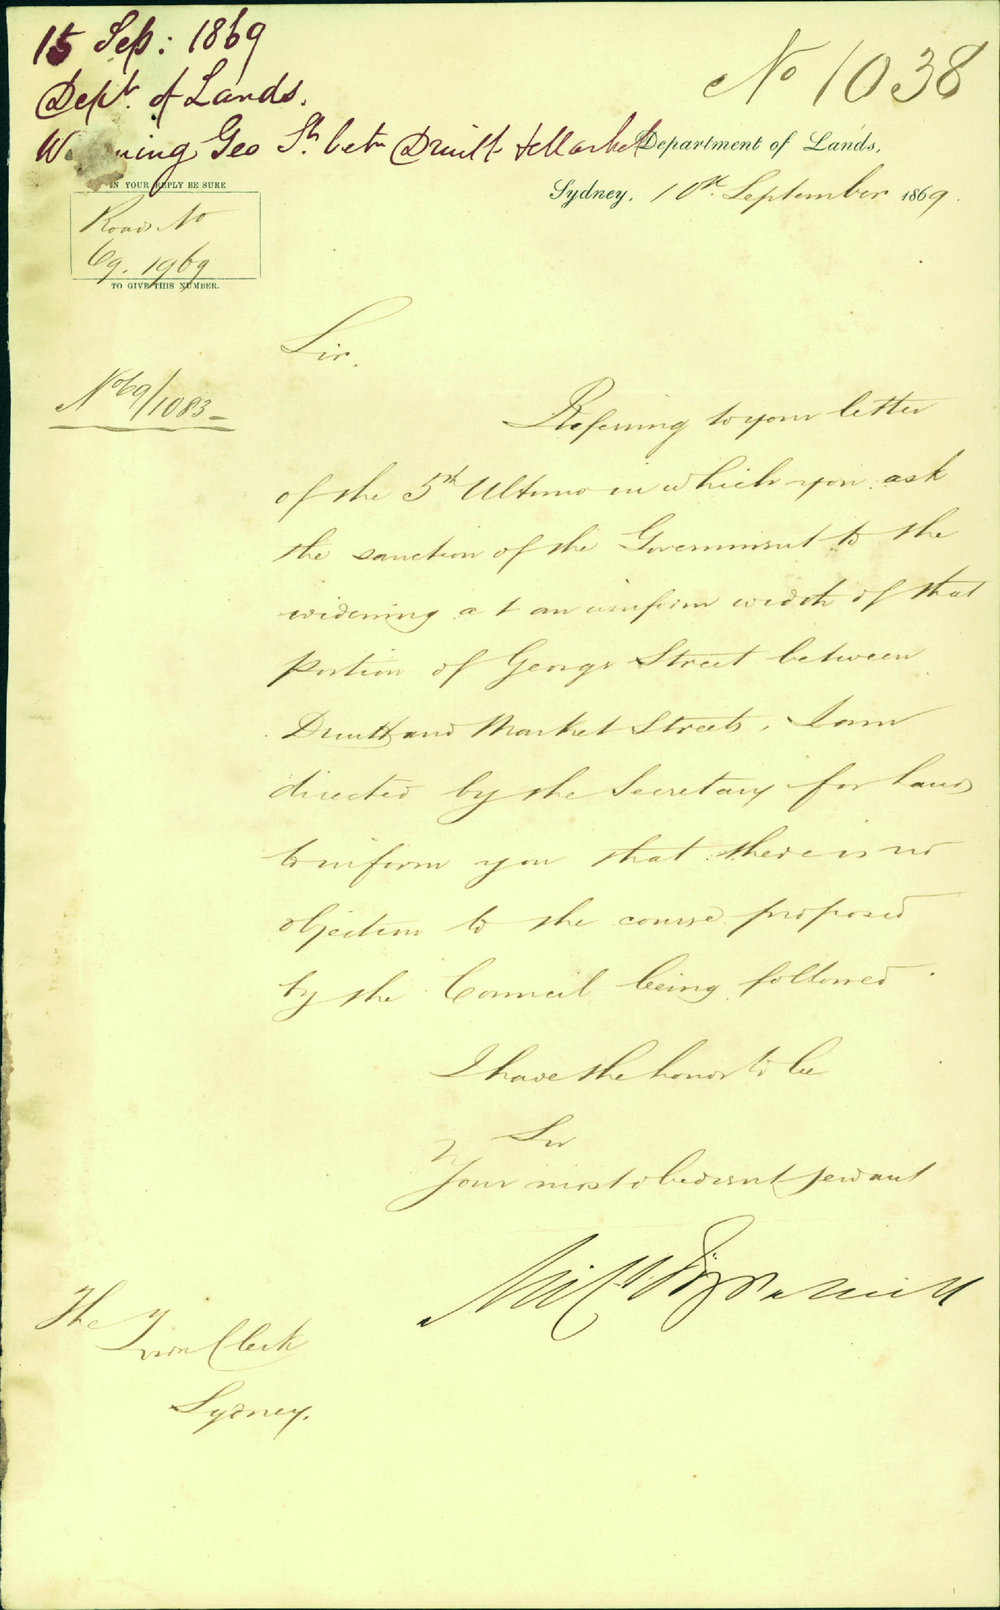 15 Sep: 1869
Dept. of Lands.
Widening Geo St. betn Druitt & Market
No 1038
Department of Lands,
Sydney, 10th September 1869.
IN YOUR REPLY BE SURE
Roads No
69. 1969
TO GIVE THIS NUMBER.
Sir,
No 69/1083
Referring to your letter
of the 5th Ultimo in which you ask
the sanction of the Government to the
widening at an uniform width of that
portion of George Street between
Druitt and Market Streets, I am
directed by the Secretary for Lands
to inform you that there is no
objection to the course proposed
by the Council being followed.
I have the honor to be
Sir
Your most obedient servant
Mich. Fitzpatrick
The
Town Clerk
Sydney.